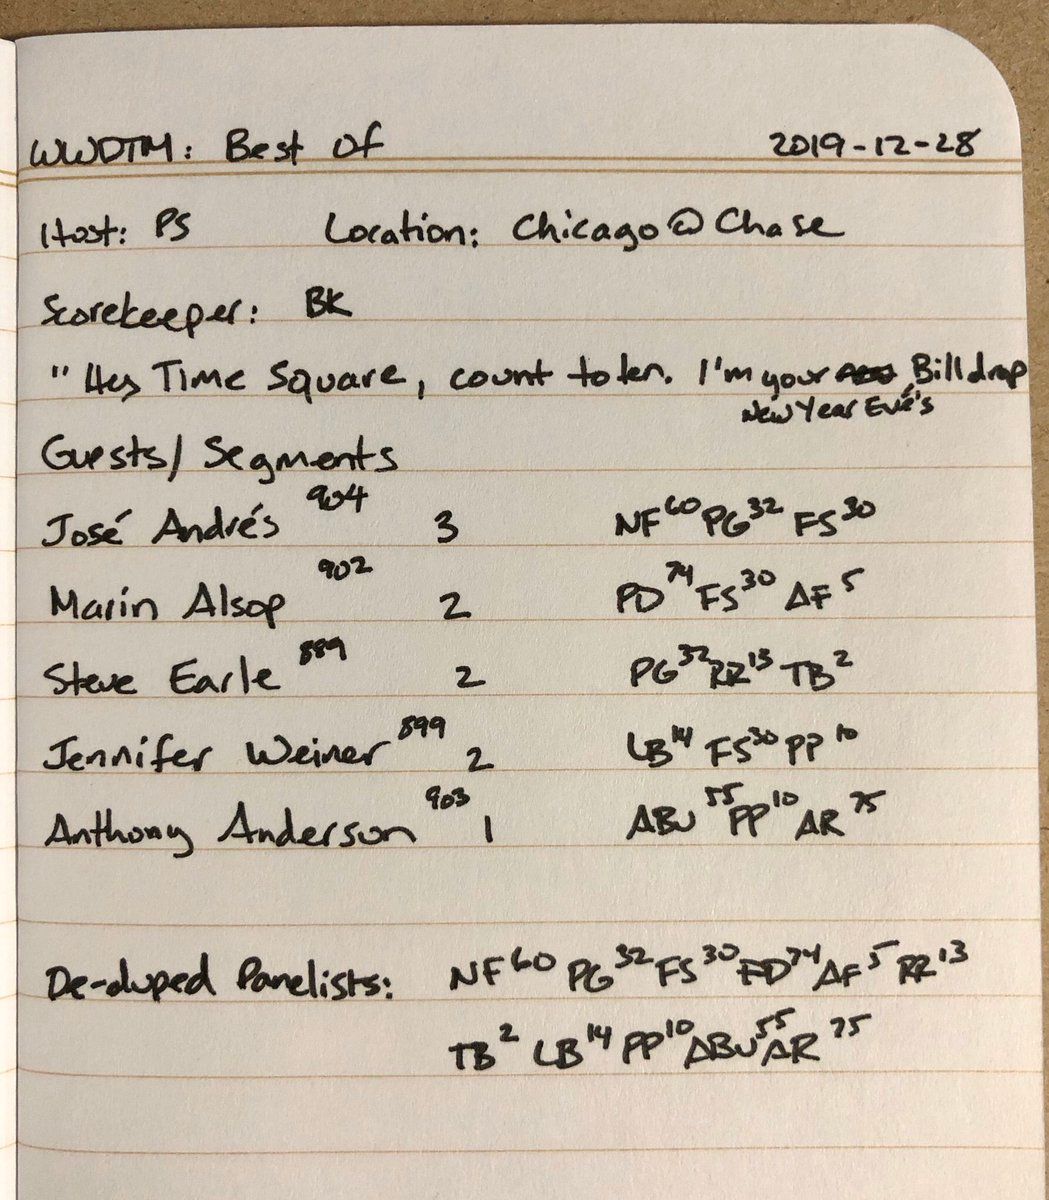 WWDTM: Best Of 2019-12-28
Host: PS Location: Chicago @ Chase
Scorekeeper: BK
"Hey Time Square, count to ten. I'm your New Year Eve's Bill drop
Guests/Segments
José Andrés 904 3 NF60 PG32 FS30
Marin Alsop 902 2 PD74 FS30 AF5
Steve Earle 889 2 PG32 RR13 TB2
Jennifer Weiner 899 2 LB14 FS30 PP10
Anthony Anderson 903 1 ABU55 PP10 AR75
De-duped Panelists: NF60 PG32 FS30 PD74 AF5 RR13
TB2 LB14 PP10 ABU55 AR75